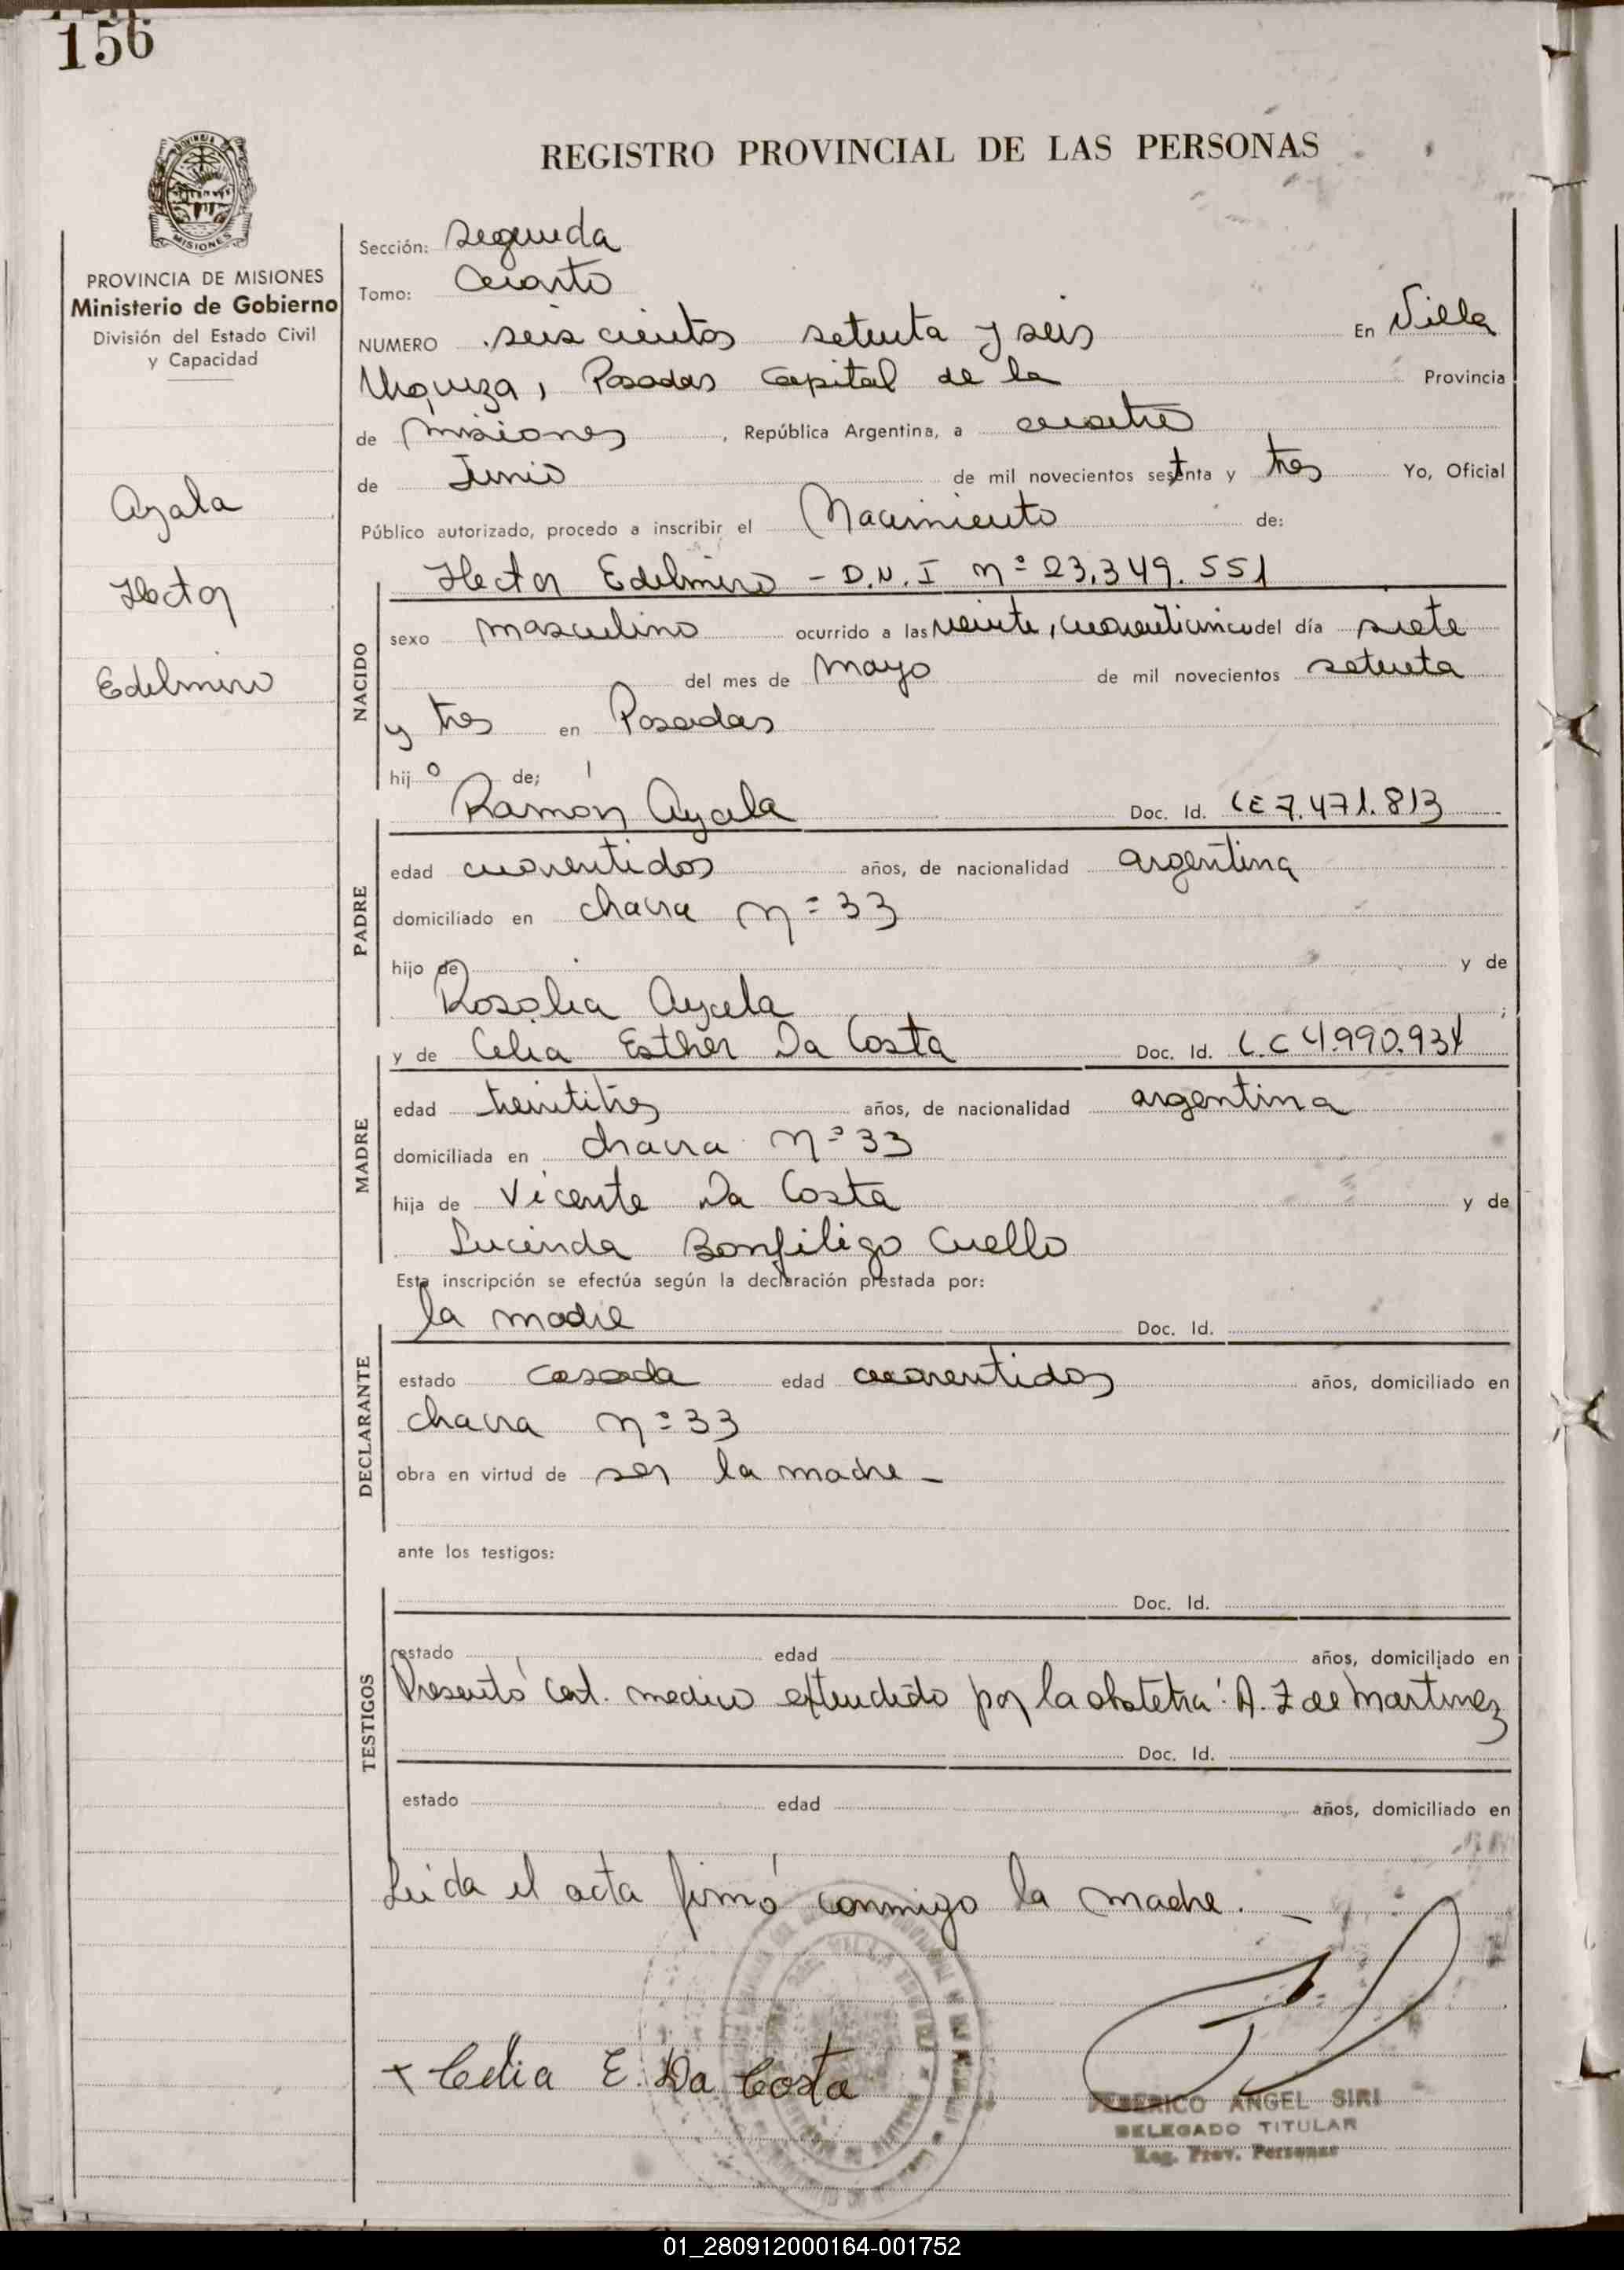 156
REGISTRO PROVINCIAL DE LAS PERSONAS
PROVINCIA DE MISIONES
Ministerio de Gobierno
División del Estado Civil
y Capacidad
Ayala
Hector
Edelmiro
Sección: segunda
Tomo: Cuarto
NUMERO seis cientos setenta y seis En Villa
Urquiza, Posadas Capital de la Provincia
de misiones, República Argentina, a cuatro
de Junio de mil novecientos setenta y tres Yo, Oficial
Público autorizado, procedo a inscribir el Nacimiento de:
NACIDO
Hector Edelmiro - D.N.I nº 23.349.551
sexo masculino ocurrido a las veinte, cuarenticinco del día siete
del mes de mayo de mil novecientos setenta
y tres en Posadas
hijo de;
PADRE
Ramón Ayala Doc. Id. CE 7.471.813
edad cuarentidos años, de nacionalidad argentina
domiciliado en chacra nº 33
hijo de y de
Rosalia Ayala ;
MADRE
y de Celia Esther Da Costa Doc. Id. L.C 4.990.934
edad treintitres años, de nacionalidad argentina
domiciliada en chacra nº 33
hija de Vicente Da Costa y de
Lucinda Bonfiligo Cuello
Esta inscripción se efectúa según la declaración prestada por:
DECLARANTE
la madre Doc. Id.
estado casada edad cuarentidos años, domiciliado en
chacra nº 33
obra en virtud de ser la madre -
ante los testigos:
TESTIGOS
Doc. Id.
estado edad años, domiciliado en
Presentó cert. medico extendido por la obstetra: A. Z de Martinez
Doc. Id.
estado edad años, domiciliado en
Leida el acta firmó conmigo la madre. -
+ Celia E. Da Costa
FEDERICO ANGEL SIRI
DELEGADO TITULAR
Reg. Prov. Personas
01_280912000164-001752